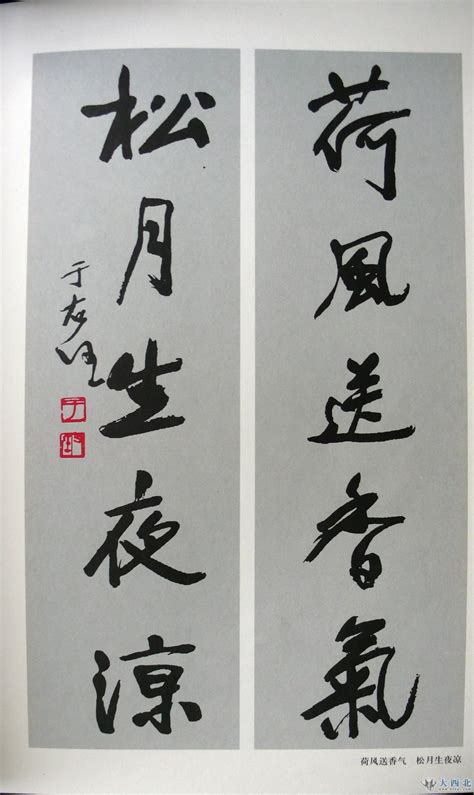 荷風送香氣
松月生夜涼
于右任
荷风送香气 松月生夜凉
大西北